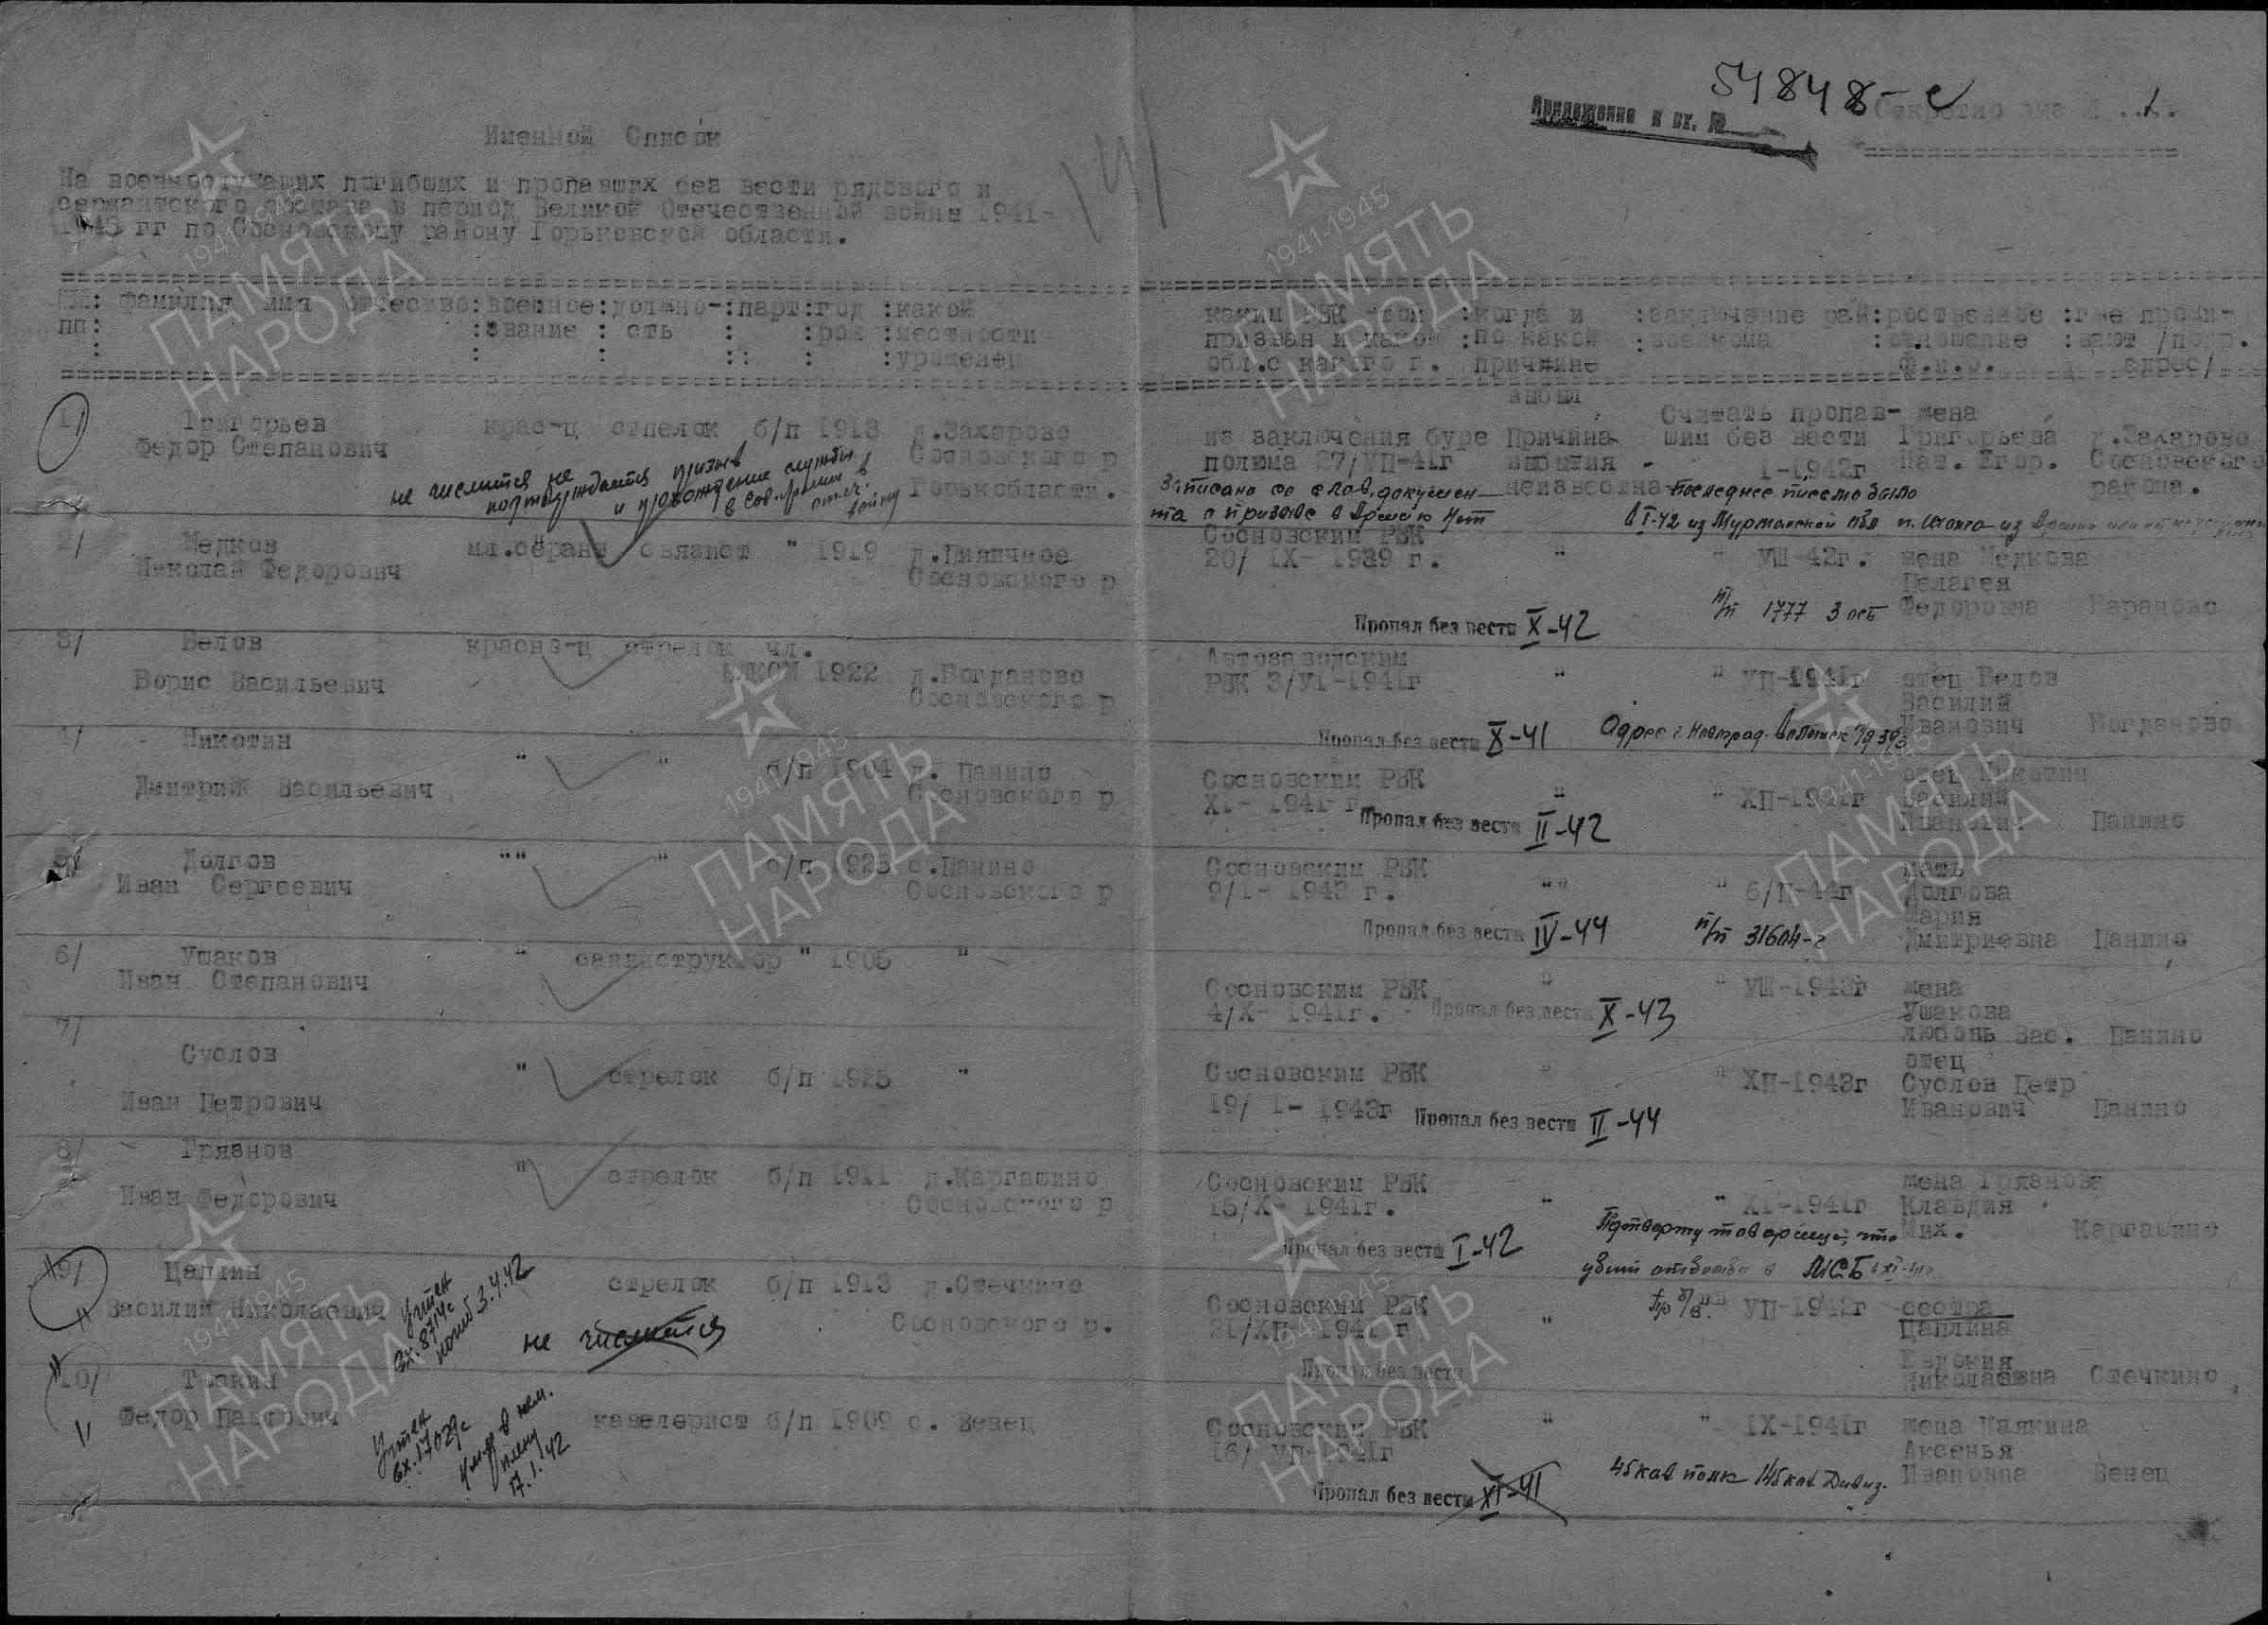 54848-с
Приложение к вх. №
Секретно экз №
Именной Список
141
На военнослужащих погибших и пропавших без вести рядового и
сержантского состава в период Великой Отечественной войны 1941-
1945 гг по Сосновскому району Горьковской области.
№№: фамилия имя отчество:военное:должно-:парт:год :какой
пп: :звание : сть : :рож :местности
: : : :: : :уроженец
каким РВК :когда и :заключение рай:родственное :где прожи-
призван и какой :по какой :военкома :отношение :вают /подр.
обл.с какого г. причине ф.и.о. адрес/
выбыл
1/ Григорьев
Федор Степанович
крас-ц стрелок б/п 1913 д.Захарово
Сосновского р
Горьк области.
не числится не
подтверждается призыв
и прохождение службы
в Сов.Армии в
отеч.
войну
из заключения буре Причина
полома 27/УП-41г выбытия -
неизвестна
Считать пропав-
шим без вести
I-1942г
жена
Григорьева
Нат. Егор.
д.Захарово
Сосновского
района.
Записано со слов, докумен
та о призове в Армею Нет
Последнее писмо было
в I-42 из Мурманской обл
2/ Медков
Николай Федорович
мл.сержан связист " 1919
Сосновского р
Сосновским РВК
20/ IX- 1939 г. "
" УШ-42г. жена Медкова
Пелагея
Федоровна Бараново
Пропал без вести X-42
п/п 1777
3/ Белов
Борис Васильевич
красно-ц стрелок чл.
ВЛКСМ 1922 д.Богданово
Сосновского р
Автозаводским
РВК 3/УI-1941г "
" УП-1941г отец Белов
Василий
Иванович Богданово
Пропал без вести X-41
4/ Никотин
Дмитрий Васильевич
" " б/п 1904 с. Панино
Сосновского р
Сосновским РВК
XI- 1941 г "
" ХП-1941г
отец Никотин
Василий
Иванович Панино
Пропал без вести II-42
5/ Долгов
Иван Сергеевич
"" " б/п 1925 с.Панино
Сосновского р
Сосновским РВК
9/I- 1943 г. ""
" 6/П-44г
мать
Долгова
Мария
Дмитриевна Панино
Пропал без вести IV-44
п/п 31604-г
6/ Ушаков
Иван Степанович
" санинструктор " 1905 "
Сосновским РВК "
4/X- 1941г.
" УШ-1943г жена
Ушакова
Любовь Вас. Панино
Пропал без вести X-43
7/
Суслов
Иван Петрович
" стрелок б/п 1925 "
Сосновским РВК "
19/ I- 1943г
" ХП-1943г
отец
Суслов Петр
Иванович Панино
Пропал без вести II-44
8/ Грязнов
Иван Федорович
" стрелок б/п 1911 д.Каргашино
Сосновского р
Сосновским РВК
15/X- 1941г. "
" XI-1941г
жена Грязнова
Клавдия
Мих. Каргашино
Пропал без вести I-42
9/ Цаплин
Василий Николаевич
стрелок б/п 1913 д.Стечкино
Сосновского р.
Учтен
вх.8714с
погиб 3.4.42
не числится
Сосновским РВК
21/ХП-1941 г "
УП-1942г сестра
Цаплина
Евдокия
Николаевна Стечкино
Пропал без вести
10/
Федор Павлович
кавелерист б/п 1909 с. Венец
Учтен
вх.17029с
умер в нем.
плену
17.1.42
Сосновским РВК "
16/ УП-1941г
" IX-1941г
Аксенья
Ивановна Венец
Пропал без вести XI-41
45 кав полк